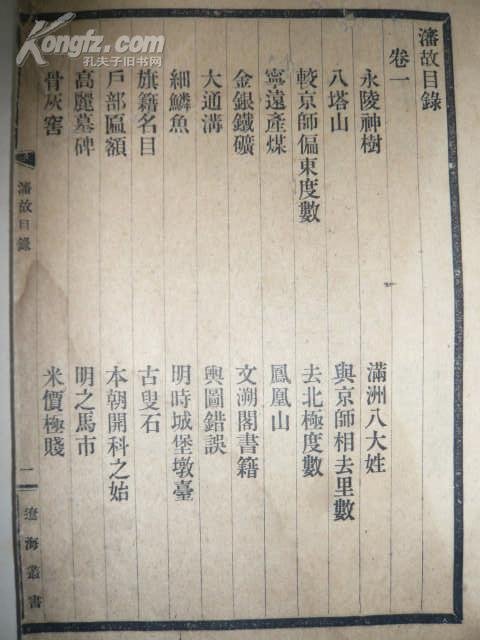 瀋故目錄
卷一
永陵神樹 滿洲八大姓
八塔山 與京師相去里數
較京師偏東度數 去北極度數
寧遠產煤 鳳凰山
金銀鐵礦 文溯閣書籍
大通溝 輿圖錯誤
細鱗魚 明時城堡墩臺
旗籍名目 古叟石
戶部匾額 本朝開科之始
高麗墓碑 明之馬市
骨灰窖 米價極賤
瀋故目錄
一
遼海叢書
Kongfz.com
孔夫子旧书网